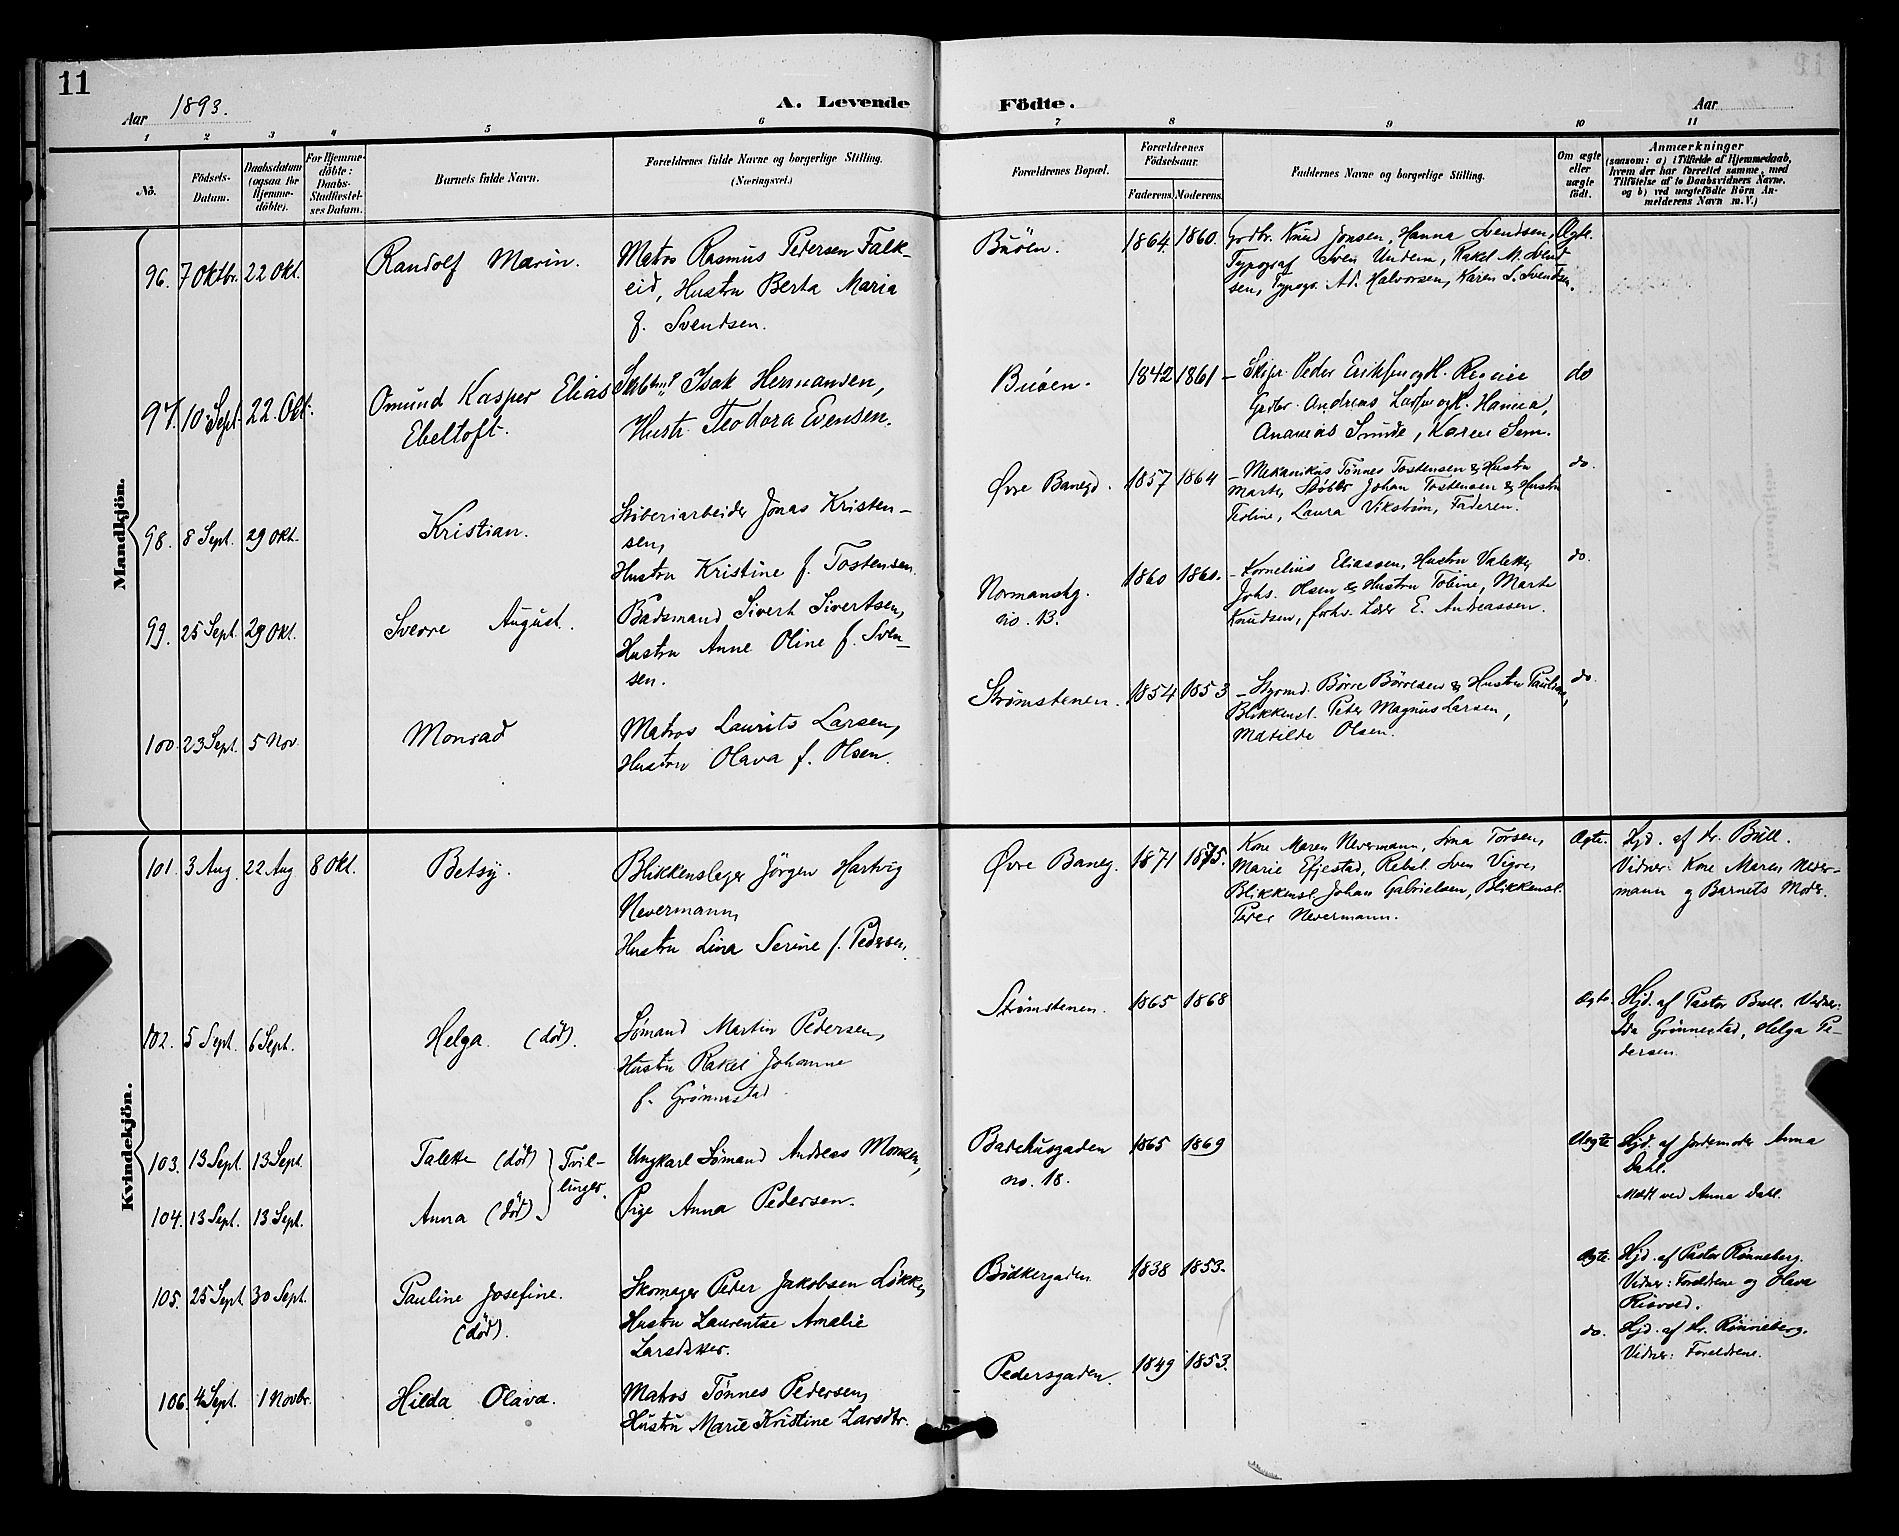 11
Aar 1893.
A. Levende Födte.
Aar
1 2 3 4 5 6 7 8 9 10 11
No.
Födsels-Datum.
Daabsdatum (ogsaa for Hjemme-döbte).
For Hjemme-döbte: Daabs-Stadfæstel-ses Datum.
Barnets fulde Navn.
Forældrenes fulde Navne og borgerlige Stilling.
(Næringsvei.)
Forældrenes Bopæl.
Forældrenes Födselsaar.
Faderens. Moderens.
Faddernes Navne og borgerlige Stilling.
Om ægte eller uægte födt.
Anmærkninger
(saasom: a) i Tilfælde af Hjemmedaab,
hvem der har forrettet samme, med
Tilföielse af to Daabsvidners Navne,
og b) ved uægtefödte Börn An-
melderens Navn m. V.)
Mandkjön.
96. 7 Oktbr. 22 Okt.
Randolf Marin.
Matros Rasmus Pedersen Falk-
eid, Hustru Berta Maria
f. Svendsen.
Buöen. 1864. 1860.
Grdbr. Knud Jonsen, Hanna Svendsen,
Typograf Sven Undem, Rakel M. Svend-
sen, Typogr. Ad. Halvorsen, Karen S. Svendsen.
Ægte.
97. 10 Sept. 22. Okt.
Omund Kasper Elias
Ebeltoft.
Isak Hermansen,
Hustr. Teodora Evensen.
Buöen. 1842 1861
– Skipr. Peder
Andreas Hanna,
Ananias Sunde, Karen Sem.
do
98. 8 Sept. 29 Okt.
Kristian.
Stöberiarbeider Jonas Kristen-
sen,
Hustru Kristine f. Tostensen.
Øvre Banegd. 1857 1864
– Mekanikus Tönnes Tostensen & Hustru
Marte, Støber Johan Tostensen & Hustru
Teoline, Laura Vikström, Faderen.
do.
99. 25 Sept. 29 Okt.
Sverre August.
Baadsmand Sivert Sivertsen,
Hustru Anne Oline f. Sven-
sen.
Normanstg.
no. 13.
1860 1860.
– Kornelius Eliassen, Hustru Valette,
Johs. Olsen & Hustru Tobine, Marte
Knudsen, forhv. Lærer E. Andreassen.
do.
100. 23 Sept. 5 Nov.
Monrad
Matros Laurits Larsen,
Hustru Olava f. Olsen.
Strømstenen. 1854 1853
– Styrmd. Börre Börresen & Hustru Pauline,
Blikkensl. Peter Magnus Larsen,
Matilde Olsen.
do.
Kvindekjön.
101. 3 Aug. 22 Aug 8 Okt.
Betsy.
Blikkenslager Jörgen Hartvig
Nevermann,
Hustru Lina Serine f. Pedersen.
Øvre Baneg. 1871 1875.
Kone Maren Nevermann, Torsen,
Marie Efjestad, Rebsl. Sven Vigre,
Blikkensl. Johan Gabrielsen, Blikkensl.
Peter Nevermann.
Ægte.
Hjd. af Hr. Bull.
Vidner: Kone Maren Never-
mann og Barnets Moder.
102. 5 Sept. 6 Sept.
Helga. (død).
Sømand Martin Pedersen,
Hustru Rakel Johanne
f. Grönnestad.
Strømstenen. 1865 1868
Ægte.
Hjd. af Pastor Bull. Vidner:
Ida Grönnestad, Helga Pe-
dersen.
103. 13 Sept. 13 Sept.
Talette (død)
Tvil-
linger.
Ungkarl Sömand Andreas Monsen,
Pige Anna Pedersen.
Badehusgaden
no. 18.
1865 1869
Uægte
Hjd. af Jordemoder Anna
Dahl.
Meldt ved Anna Dahl.
104. 13 Sept. 13 Sept.
Anna (død)
105. 25 Sept. 30 Sept.
Pauline Josefine.
(død).
Skomager Peter Jakobsen Løkke,
Hustru Laurentse Amalie
Larsdatter.
Bødkergaden 1838 1853.
Ægte.
Hjd. af Pastor Rønneberg.
Vidner: Forældrene og Olava
Risvold.
106. 4 Sept. 1 Novbr.
Hilda Olava.
Matros Tönnes Pedersen,
Hustru Marie Kristine Larsdtr.
Pedersgaden. 1849 1853.
do.
Hjd. af Hr. Rønneberg.
Vidner: Forældrene.